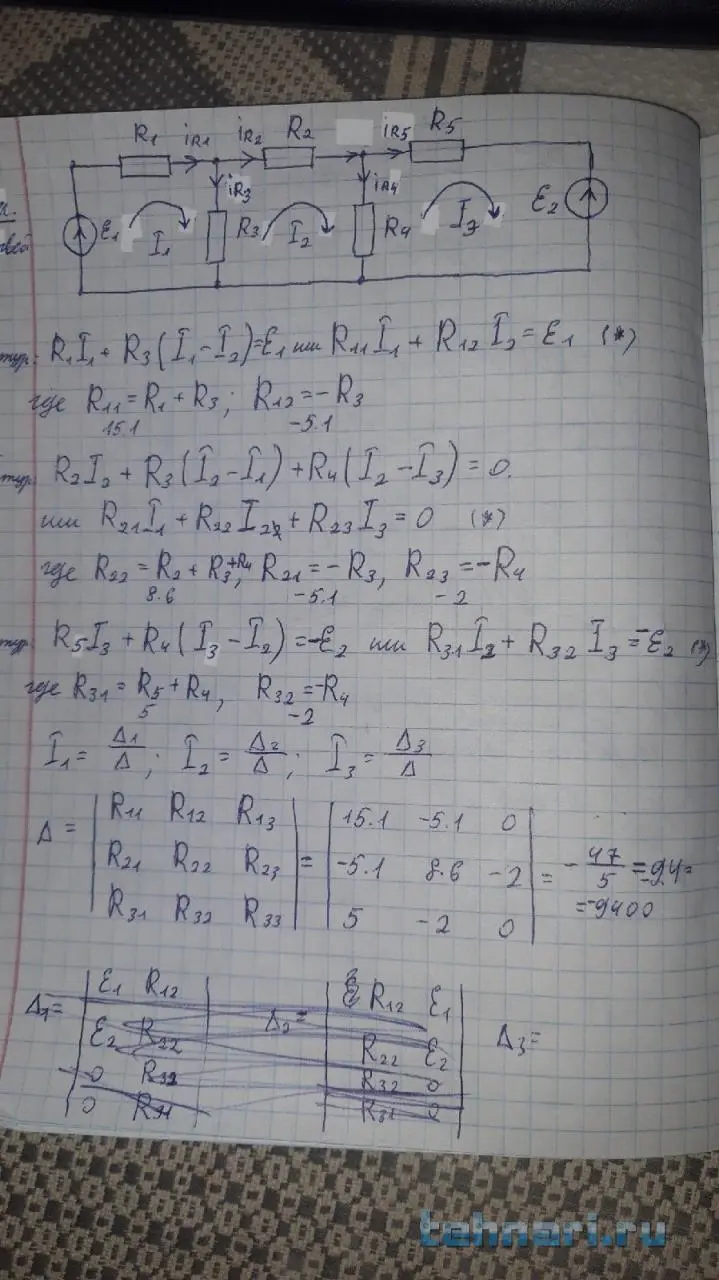 R1 iR1 iR2 R2 iR5 R5
iR3 iR4
E1 I1 R3 I2 R4 I3 E2
тур: R1I1 + R3(I1-I2)=E1 или R11I1 + R12I2 = E1 (*)
где R11 = R1 + R3; R12 = -R3
15.1 -5.1
тур: R2I2 + R3(I2-I1) + R4(I2-I3) = 0.
или R21I1 + R22I22 + R23I3 = 0 (*)
где R22 = R2 + R3+R4, R21 = -R3, R23 = -R4
8.6 -5.1 -2
тур: R5I3 + R4(I3-I2) = -E2 или R31I2 + R32I3 = -E2 (*)
где R31 = R5 + R4, R32 = -R4
5 -2
I1 = Δ1/Δ; I2 = Δ2/Δ; I3 = Δ3/Δ
Δ = | R11 R12 R13 | = | 15.1 -5.1 0 | = -47/5 = -9.4=
| R21 R22 R23 | | -5.1 8.6 -2 | =-9400
| R31 R32 R33 | | 5 -2 0 |
Δ1= | E1 R12 | Δ2= | R12 E1 | Δ3=
| E2 R22 | | R22 E2 |
| 0 R32 | | R32 0 |
| 0 R31 | | R31 0 |
tehnari.ru